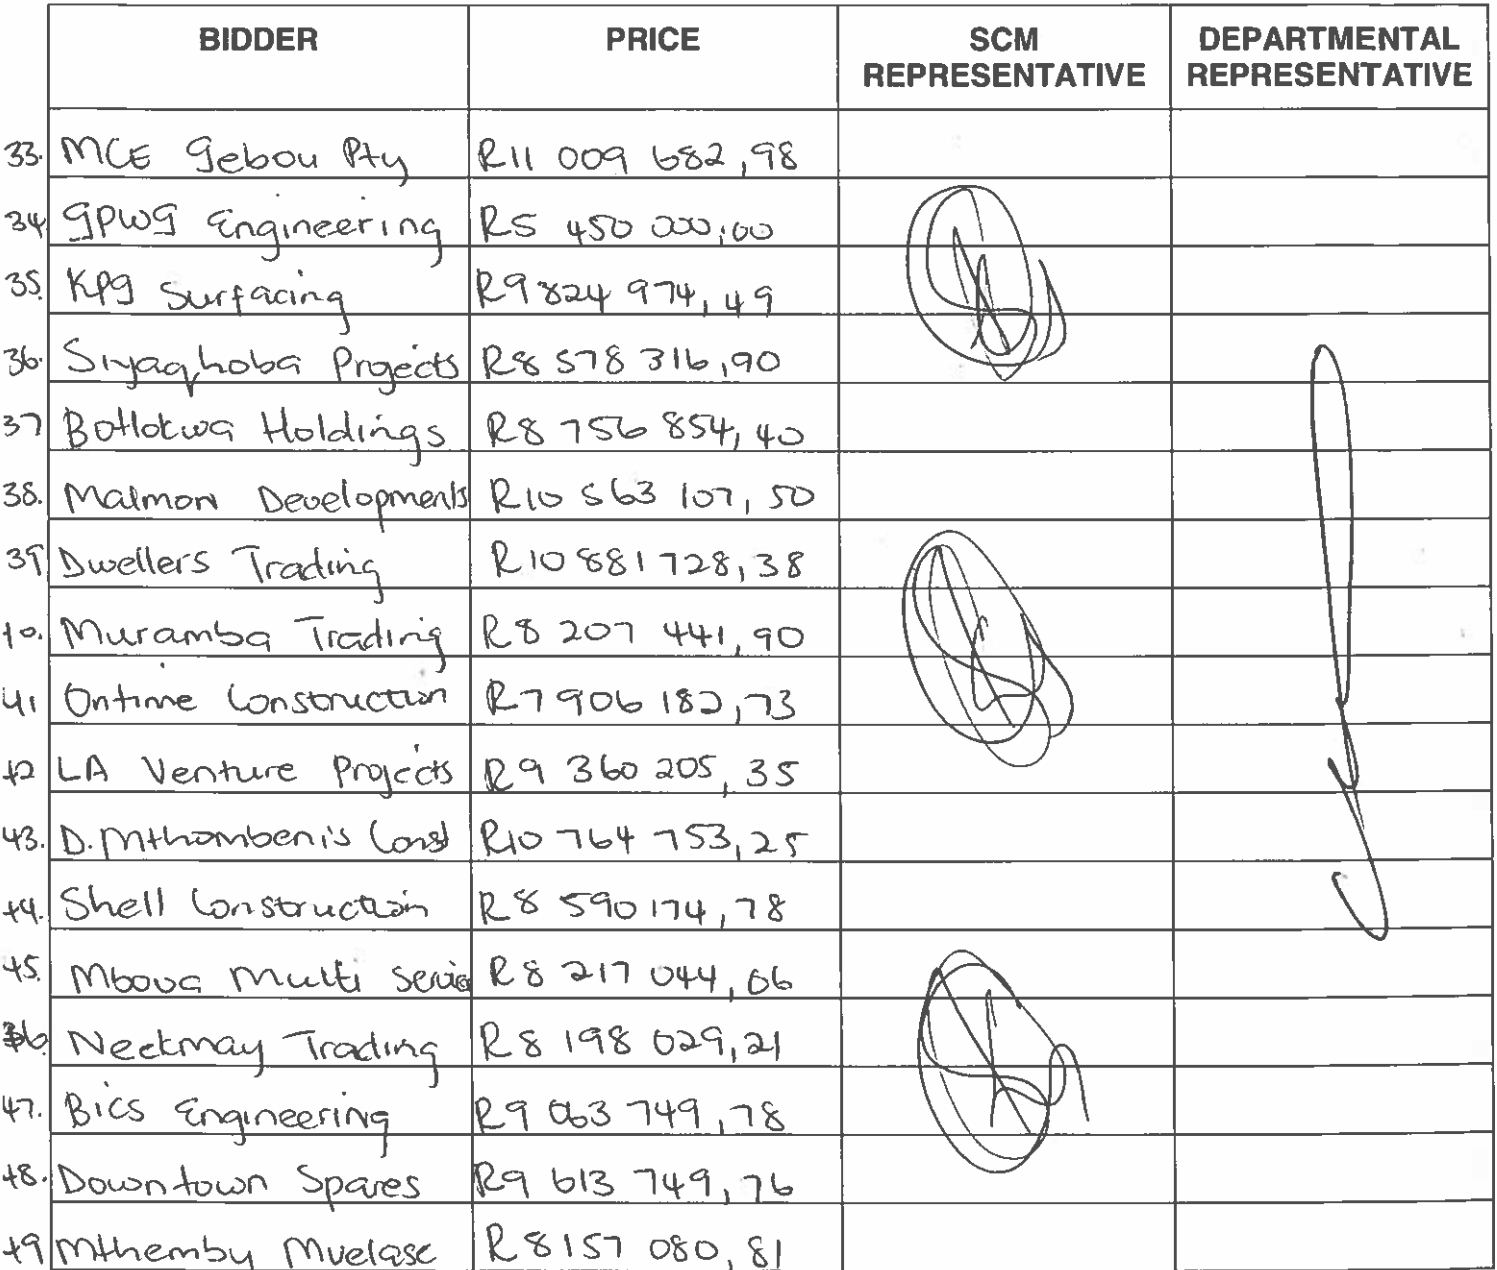 BIDDER PRICE SCM REPRESENTATIVE DEPARTMENTAL REPRESENTATIVE
33. MCE Gebou Pty R11 009 682,98
34. GPWG Engineering R5 450 000,00
35. KPG Surfacing R9 824 974,49
36. Siyaqhoba Projects R8 578 316,90
37 Botlokwa Holdings R8 756 854,40
38. Malmon Developments R10 563 107,50
39 Dwellers Trading R10 881 728,38
40. Muramba Trading R8 207 441,90
41 Ontime Construction R7 906 182,73
42 LA Venture Projects R9 360 205,35
43. D.Mthombeni's Const R10 764 753,25
44. Shell Construction R8 590 174,78
45. Mbova Multi Service R8 217 044,06
46. Neckmay Trading R8 198 029,21
47. Bics Engineering R9 063 749,78
48. Downtown Spares R9 613 749,76
49 Mthemby Mvelase R8 157 080,81